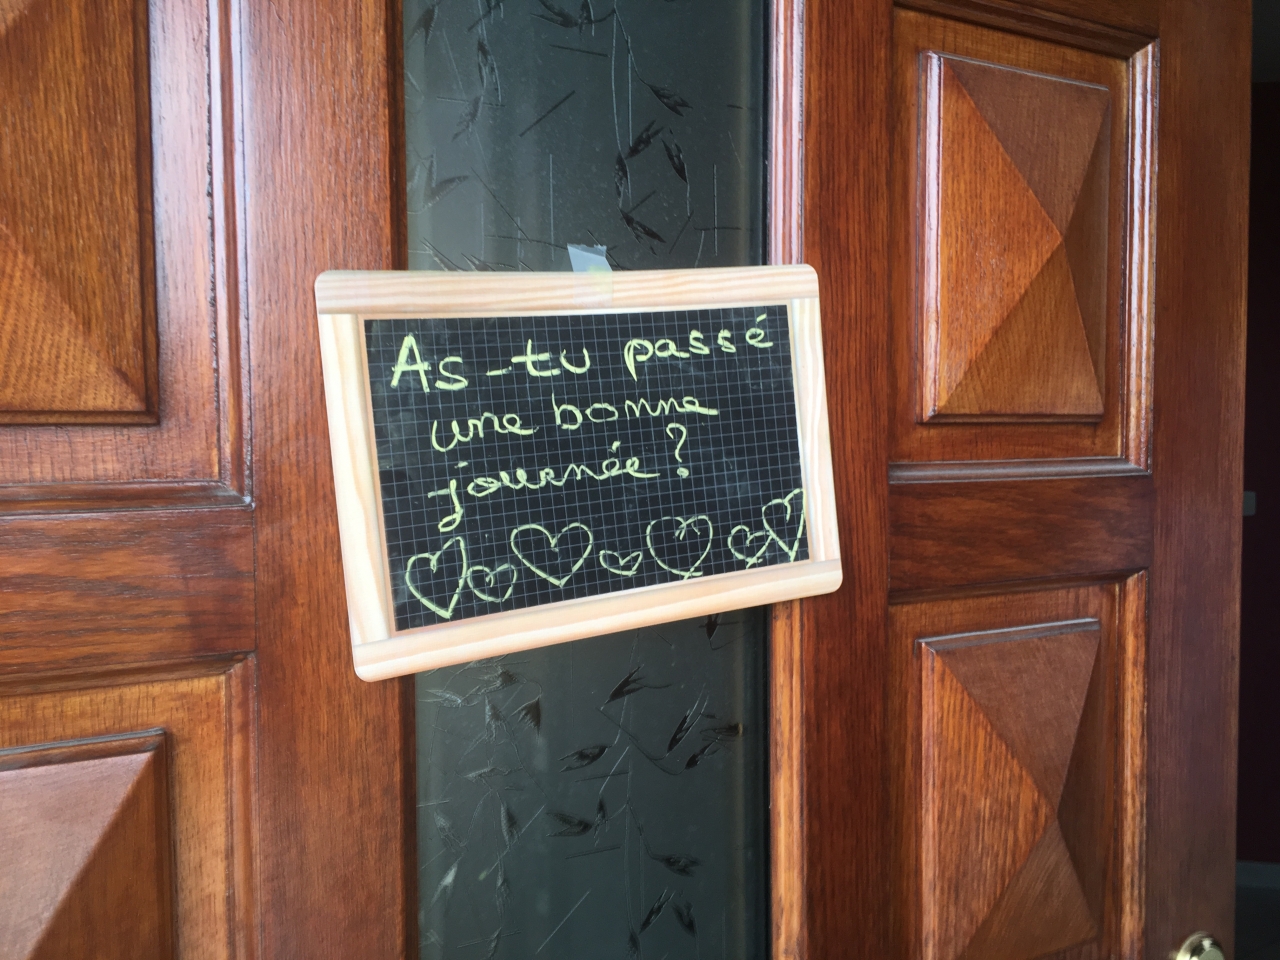 As-tu passé
une bonne
journée ?